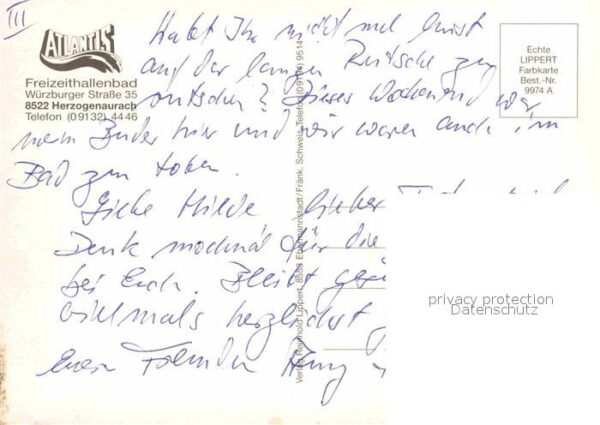 III
ATLANTIS
Freizeithallenbad
Würzburger Straße 35
8522 Herzogenaurach
Telefon (09132) 4446
Echte
LIPPERT
Farbkarte
Best.-Nr.
9974 A
Habt Ihr nicht mal Lust
auf der langen Rutsche zu
rutschen? Dieses Wochenend war
mein Bruder hier und wir waren auch im
Bad zum toben.
Liebe Hilde lieber
Dank nochmal für die
bei Euch. Bleibt
vielmals herzlichst
Verlag Reinhold Lippert, 8553 Ebermannstadt/Fränk. Schweiz, Telefon (09194) 9514
privacy protection
Datenschutz